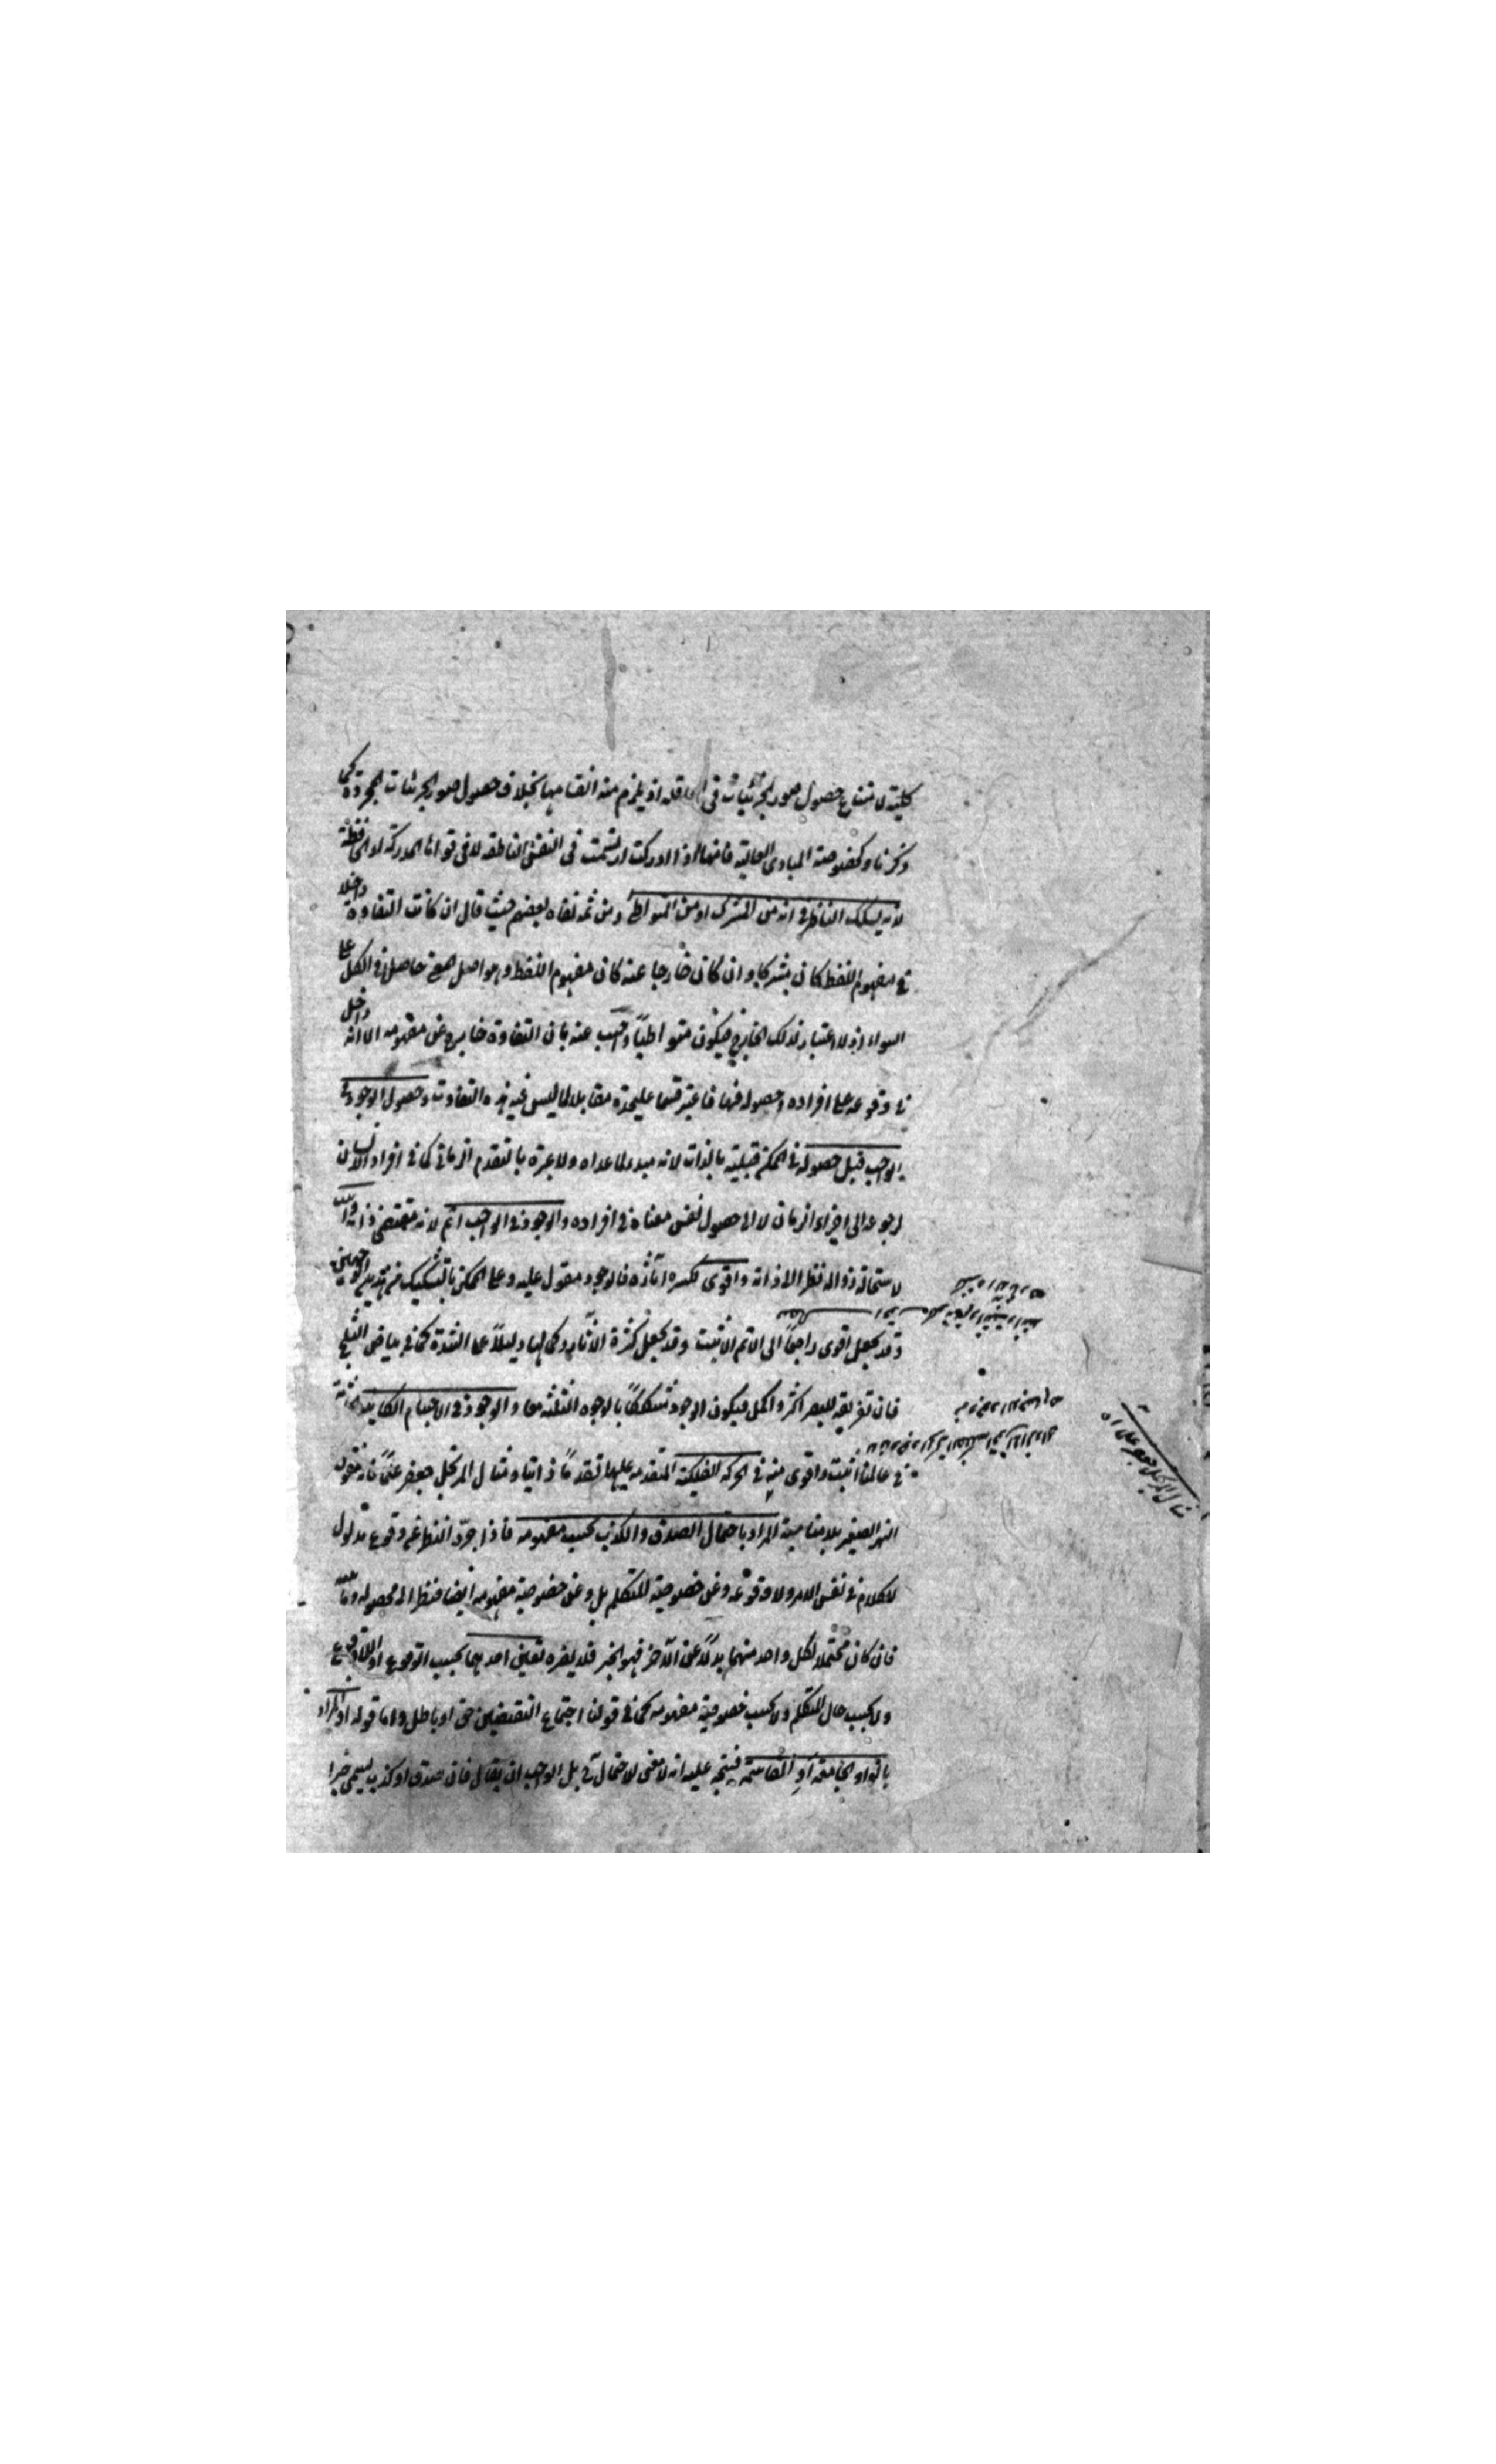 كلية لامتناع حصول صور الجزئيات في العاقلة اذ يلزم منه انقسامها بخلاف حصول صور الجزئيات المجردة كما
ذكرنا وكخصوصة المبادى العالية فانها اذا ادركت ارتسمت في النفس الناطقة لا في قواها المدركة او الحافظة
لانه يشكك الناظر في انه من المشترك او من المتواطى ومن ثمه نفاه بعضهم حيث قال ان كانت التفاوة داخلا
في مفهوم اللفظ كان مشتركا وان كان خارجا عنه كان مفهوم اللفظ وهو اصل المعنى حاصلا في الكل على
السواء اذ لا اعتبار لذلك الخارج فيكون متواطيا واجيب عنه بان التفاوة خارج عن مفهومه الا انه داخل
في وقوعه على افراده وحصوله فيها فاعتبر قسما عليحدة مقابلا لما ليس فيه هذه التفاوت وحصول الوجود في
الواجب قبل حصوله في الممكن قبلية بالذات لانه مبدء لما عداه ولا عبرة بالتقدم الزماني كما في افراد الانسان
لرجوعه الى اجزاء الزمان لا الى حصول نفس معناه في افراده والوجود في الواجب اتم لانه مقتضى ذاته واثبت
لاستحالة زواله نظرا الى ذاته واقوى لكثرة آثاره فالوجود مقول عليه وعلى الممكن بالتشكيك من هذين الوجهين
وقد يجعل اقوى راجعا الى الاتم الاثبت وقد يجعل كثرة الآثار وكمالها دليلا على الشدة كما في بياض الثلج
فان تفريقه للبصر اكثر واكمل فيكون الوجود مشككا بالوجوه الثلثة معا والوجود في الاجسام الكاينة
في عالمنا اثبت واقوى منه في الحركة الفلكية المتقدمة عليها تقدما ذاتيا ومثال المرتجل جعفر علما فانه منقول
النهر الصغير بلا مناسبة المراد باحتمال الصدق والكذب بحسب مفهومه فاذا جرد النظر عن وقوع مدلول
الكلام في نفس الامر ولا وقوعه وعن خصوصية المتكلم بل وعن خصوصية مفهومه ايضا فنظر الى محصوله
فان كان محتملا لكل واحد منهما بدلا عن الآخر فهو الخبر فلا يضره تعين احدهما بحسب الوقوع او اللاوقوع
ولا بحسب حال المتكلم ولا بحسب خصوصية مفهومه كما في قولنا اجتماع النقيضين حق او باطل واما قوله او المراد
بالواو الجامعة او القاسمة فيتجه عليه انه لا معنى لاحتمال بل الواجب ان يقال فان صدق او كذب يسمى خبرا